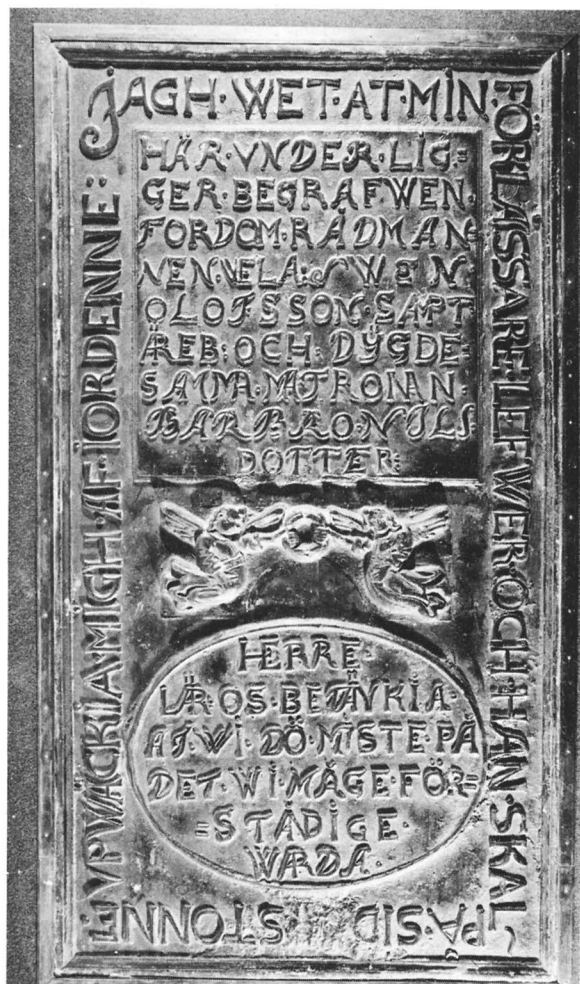 JAGH·WET·AT·MIN·
FÖRLAISSARE·LEFWER·OCH·HAN·SKAL
PÅ·SID STONNE
VPWÄCKIA·MIGH·AF·IORDENNE:
HÄR·VNDER·LIG=
GER·BEGRAFWEN·
FORDOM·RÅDMAN
NEN·VELA:SWEN·
OLOFSSON·SAMT
ÄREB:OCH·DŸGDE=
SAMMA·MATRONAN·
BARBRO·NILS
DOTTER:
HERRE·
LÄR·OS·BETÄNKIA·
AT·WI·DÖ·MÅSTE·PÅ
DET·WI·MÅGE·FÖR=
=STÅDIGE·
WARDA·